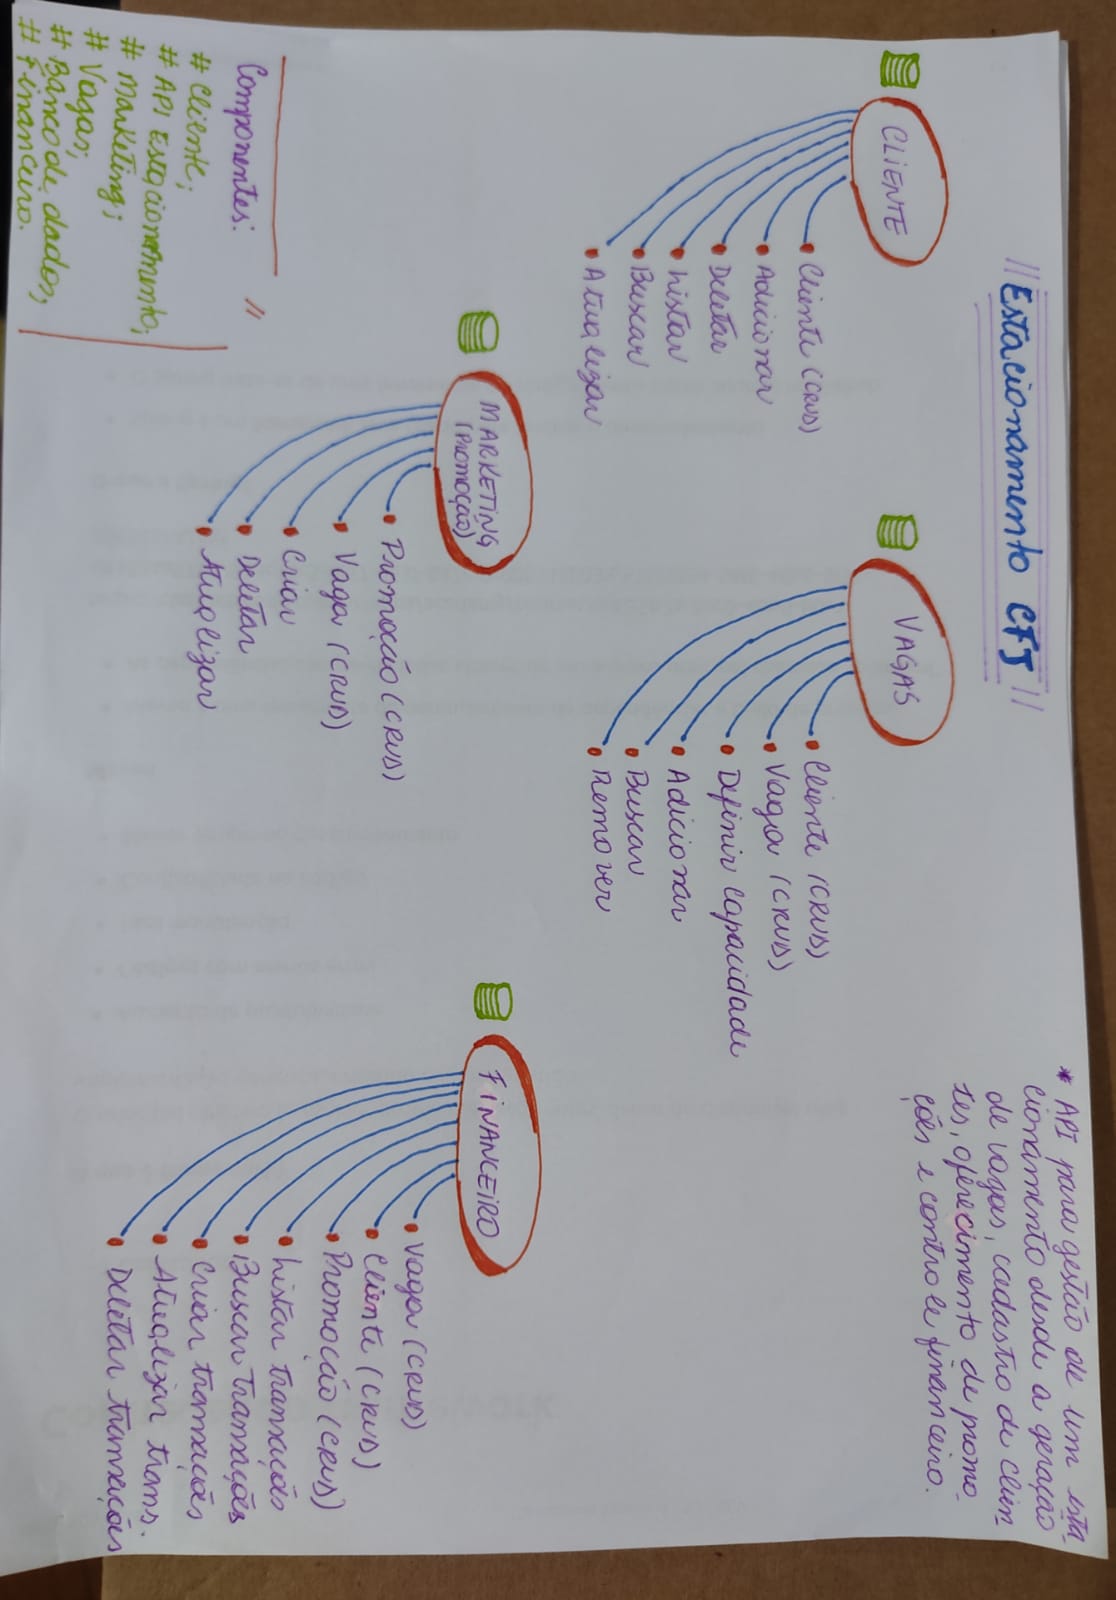 Estacionamento CFJ
* API para gestão de um esta
cionamento desde a geração
de vagas, cadastro de clien
tes, oferecimento de promo
ções e controle financeiro.
CLIENTE
Cliente (CRUD)
Adicionar
Deletar
Listar
Buscar
Atualizar
VAGAS
Cliente (CRUD)
Vaga (CRUD)
Definir capacidade
Adicionar
Buscar
Remover
MARKETING
(Promoção)
Promoção (CRUD)
Vaga (CRUD)
Criar
Deletar
Atualizar
FINANCEIRO
Vaga (CRUD)
Cliente (CRUD)
Promoção (CRUD)
Listar transações
Buscar transações
Criar transações
Atualizar trans.
Deletar transações
Componentes:
# Cliente;
# API Estacionamento;
# Marketing;
# Vagas;
# Banco de dados;
# Financeiro.